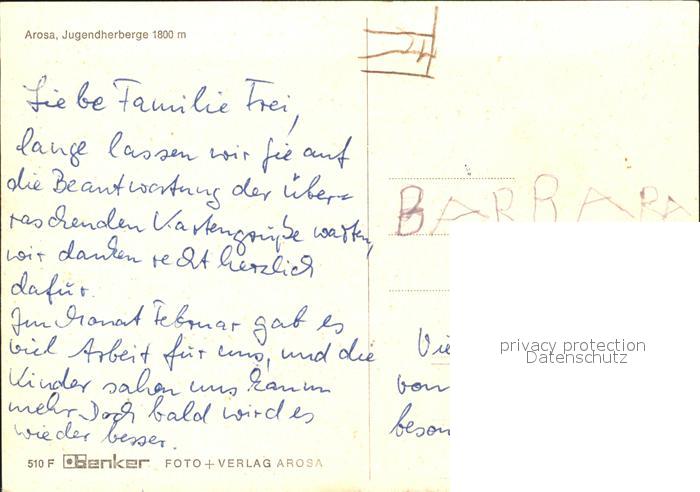 Arosa, Jugendherberge 1800 m
24
Liebe Familie Frei,
lange lassen wir Sie auf
die Beantwortung der über=
raschenden Kartengrüße warten,
wir danken recht herzlich
dafür.
Im Monat Februar gab es
viel Arbeit für uns, und die
Kinder sahen uns kaum
mehr. Doch bald wird es
wieder besser.
BARBARA
Vie
von
beson
privacy protection
Datenschutz
510 F Benker FOTO + VERLAG AROSA